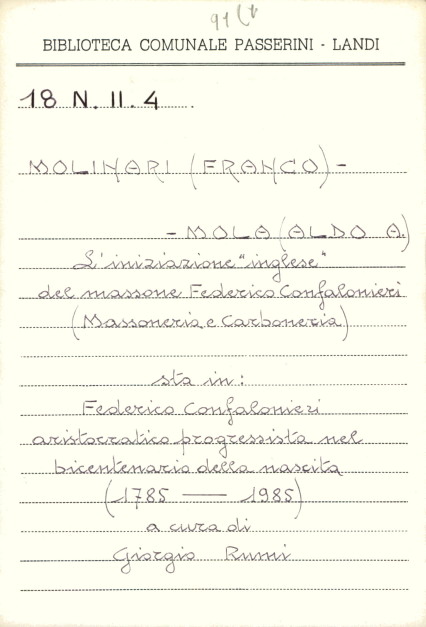 BIBLIOTECA COMUNALE PASSERINI - LANDI
18 N. II. 4
MOLINARI (FRANCO) -
- MOLA (ALDO A.)
L'iniziazione "inglese"
del massone Federico Confalonieri
(Massoneria e Carboneria)
sta in:
Federico Confalonieri
aristocratico progressista nel
bicentenario della nascita
(1785 — 1985)
a cura di
Giorgio Rumi